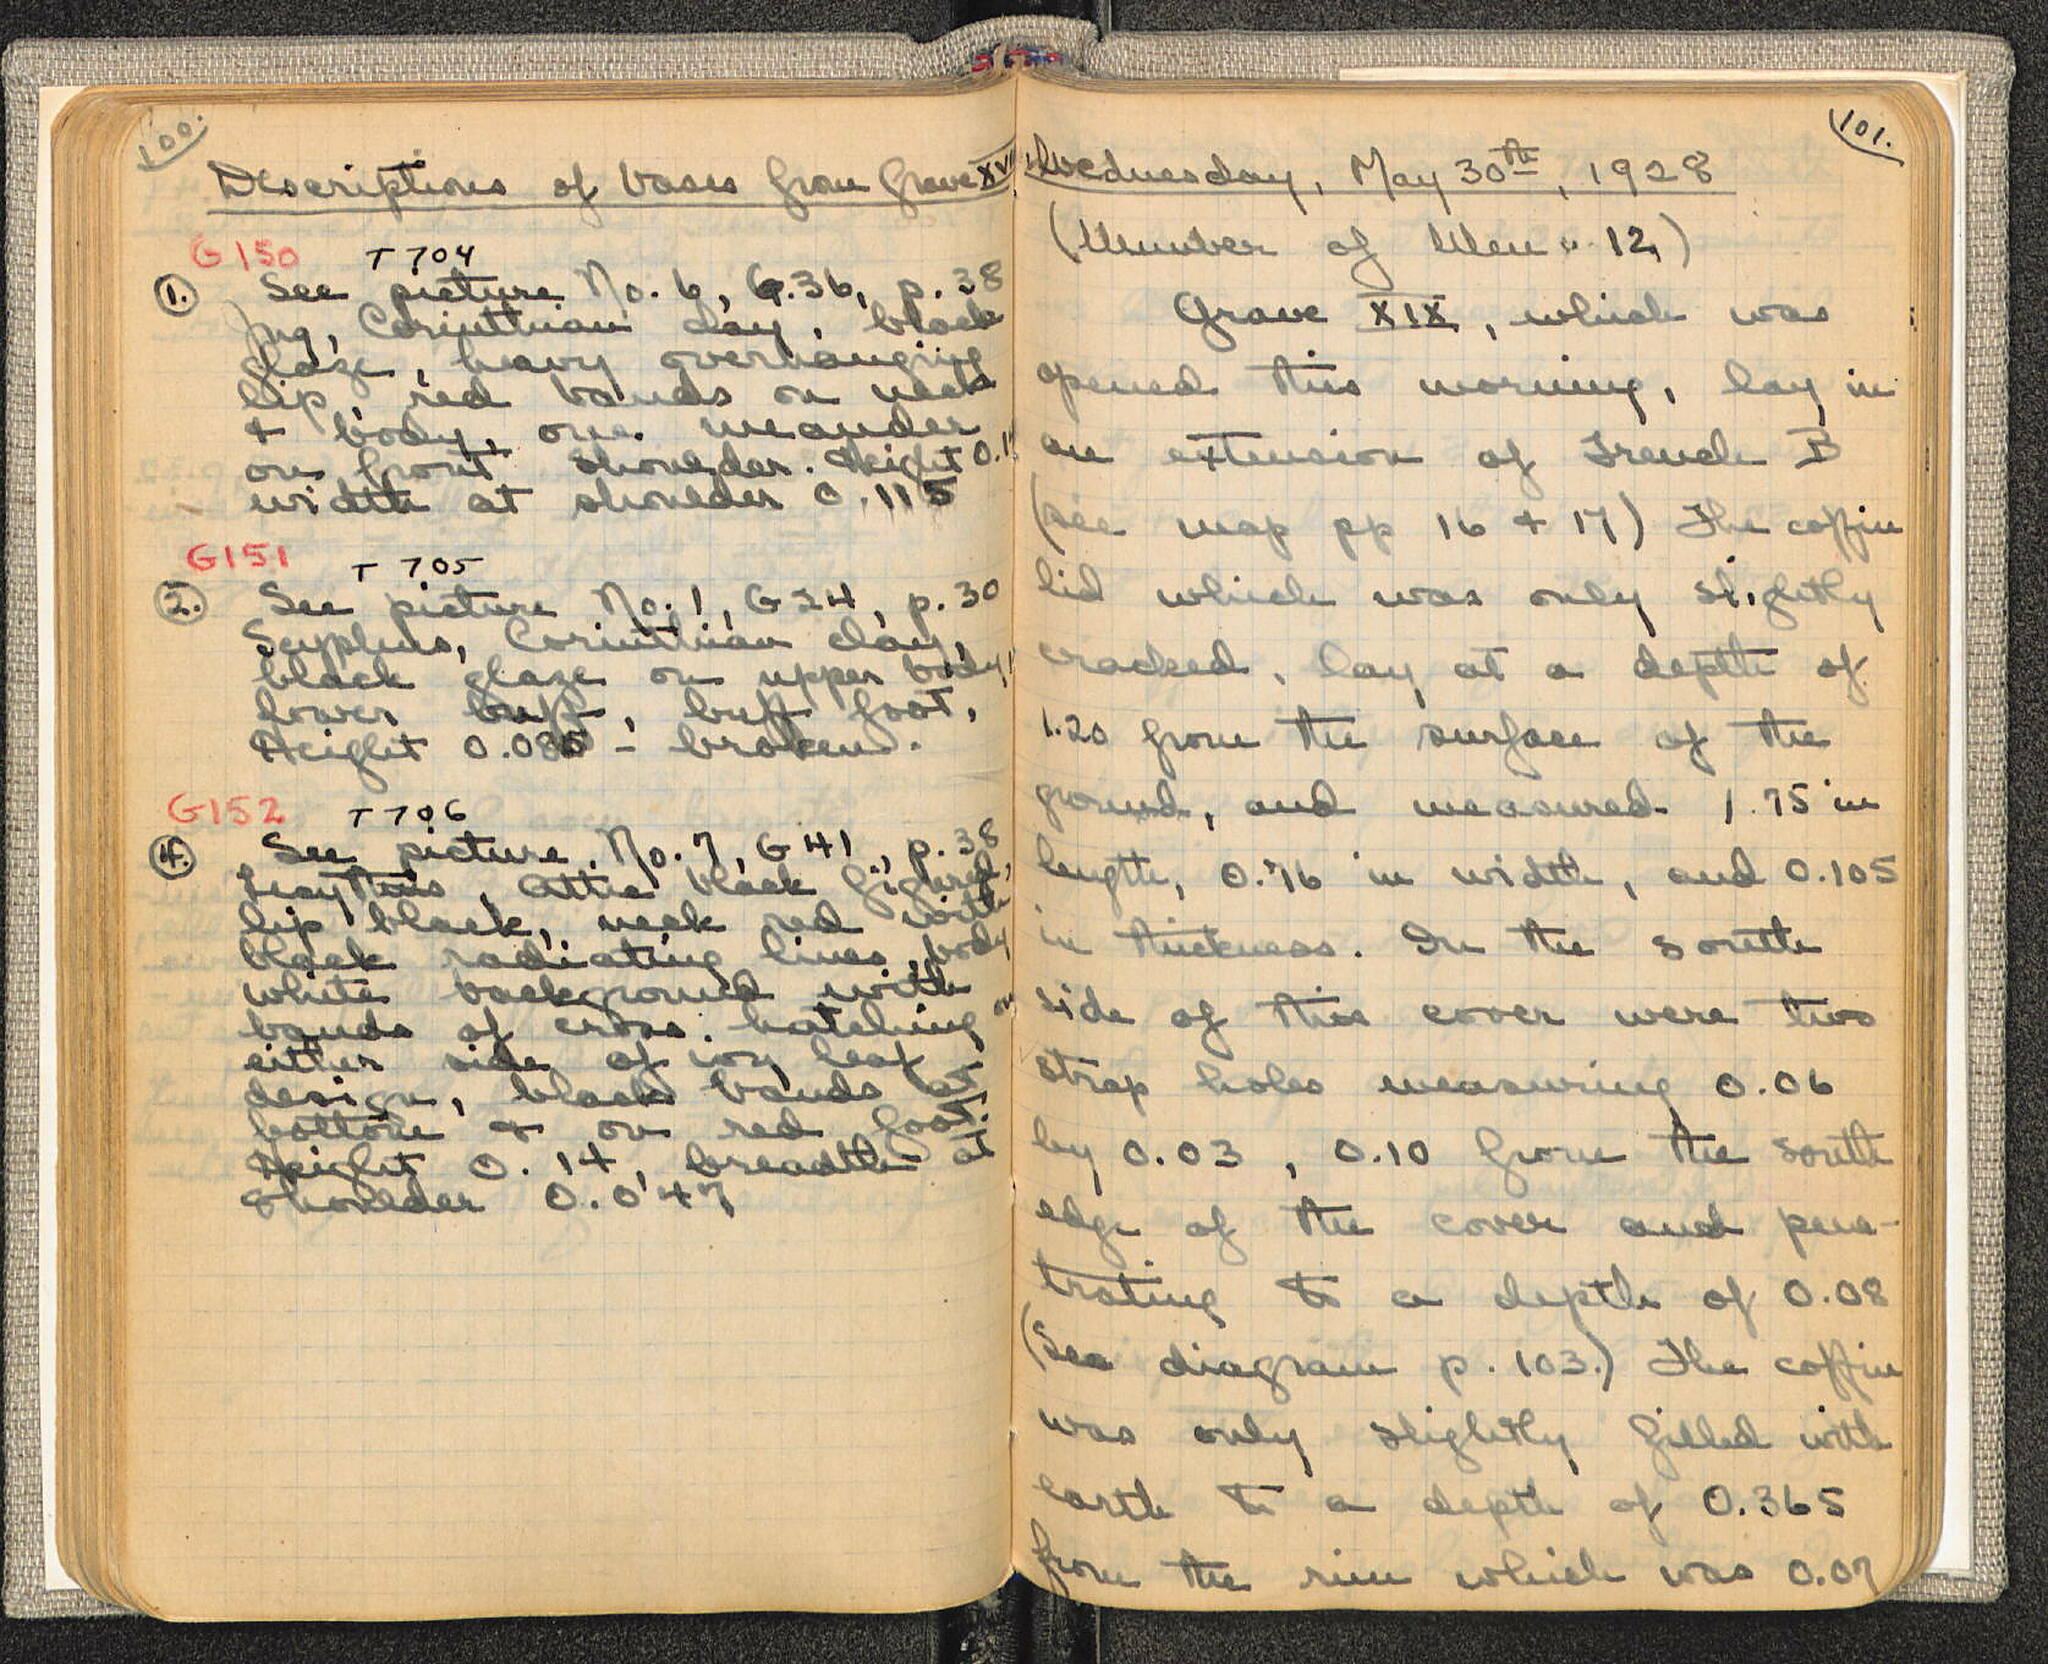 100.
Descriptions of vases from Grave XVI
G150 T 704
1. See picture No. 6, G.36, p. 38
Jug, Corinthian clay, black
glaze, heavy overhanging
lip, red bands on neck
+ body, one meander
on front shoulder. Height 0.1
width at shoulder 0.115
G151 T 705
2. See picture No. 1, G24, p. 30
Scyphus, Corinthian clay,
black glaze on upper body,
lower buff, buff foot,
Height 0.085 - broken.
G152 T 706
4. See picture No. 7, G41, p. 38
Lecythus, Attic black figured,
lip black, neck red with
black radiating lines, body
white background with
bands of cross hatching on
either side of ivy leaf
design, black bands at
bottom & on red foot.
Height 0.14, breadth at
shoulder 0.047
101.
Wednesday, May 30th, 1928
(Number of Men = 12)
Grave XIX, which was
opened this morning, lay in
an extension of Trench B
(see map pp 16 + 17) The coffin
lid which was only slightly
cracked, lay at a depth of
1.20 from the surface of the
ground, and measured 1.75 in
length, 0.76 in width, and 0.105
in thickness. In the south
side of this cover were two
strap holes measuring 0.06
by 0.03, 0.10 from the south
edge of the cover and pene-
trating to a depth of 0.08
(See diagram p. 103.) The coffin
was only slightly filled with
earth to a depth of 0.365
from the rim which was 0.07